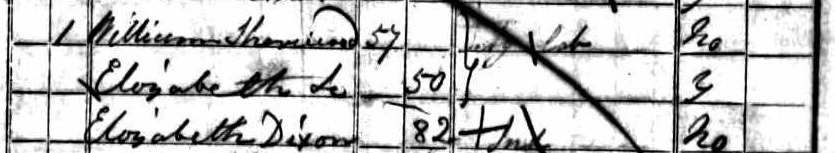 1 William 57 Ag Lab No
Elizabeth Do 50 Y
Elizabeth Dixon 82 Ind No